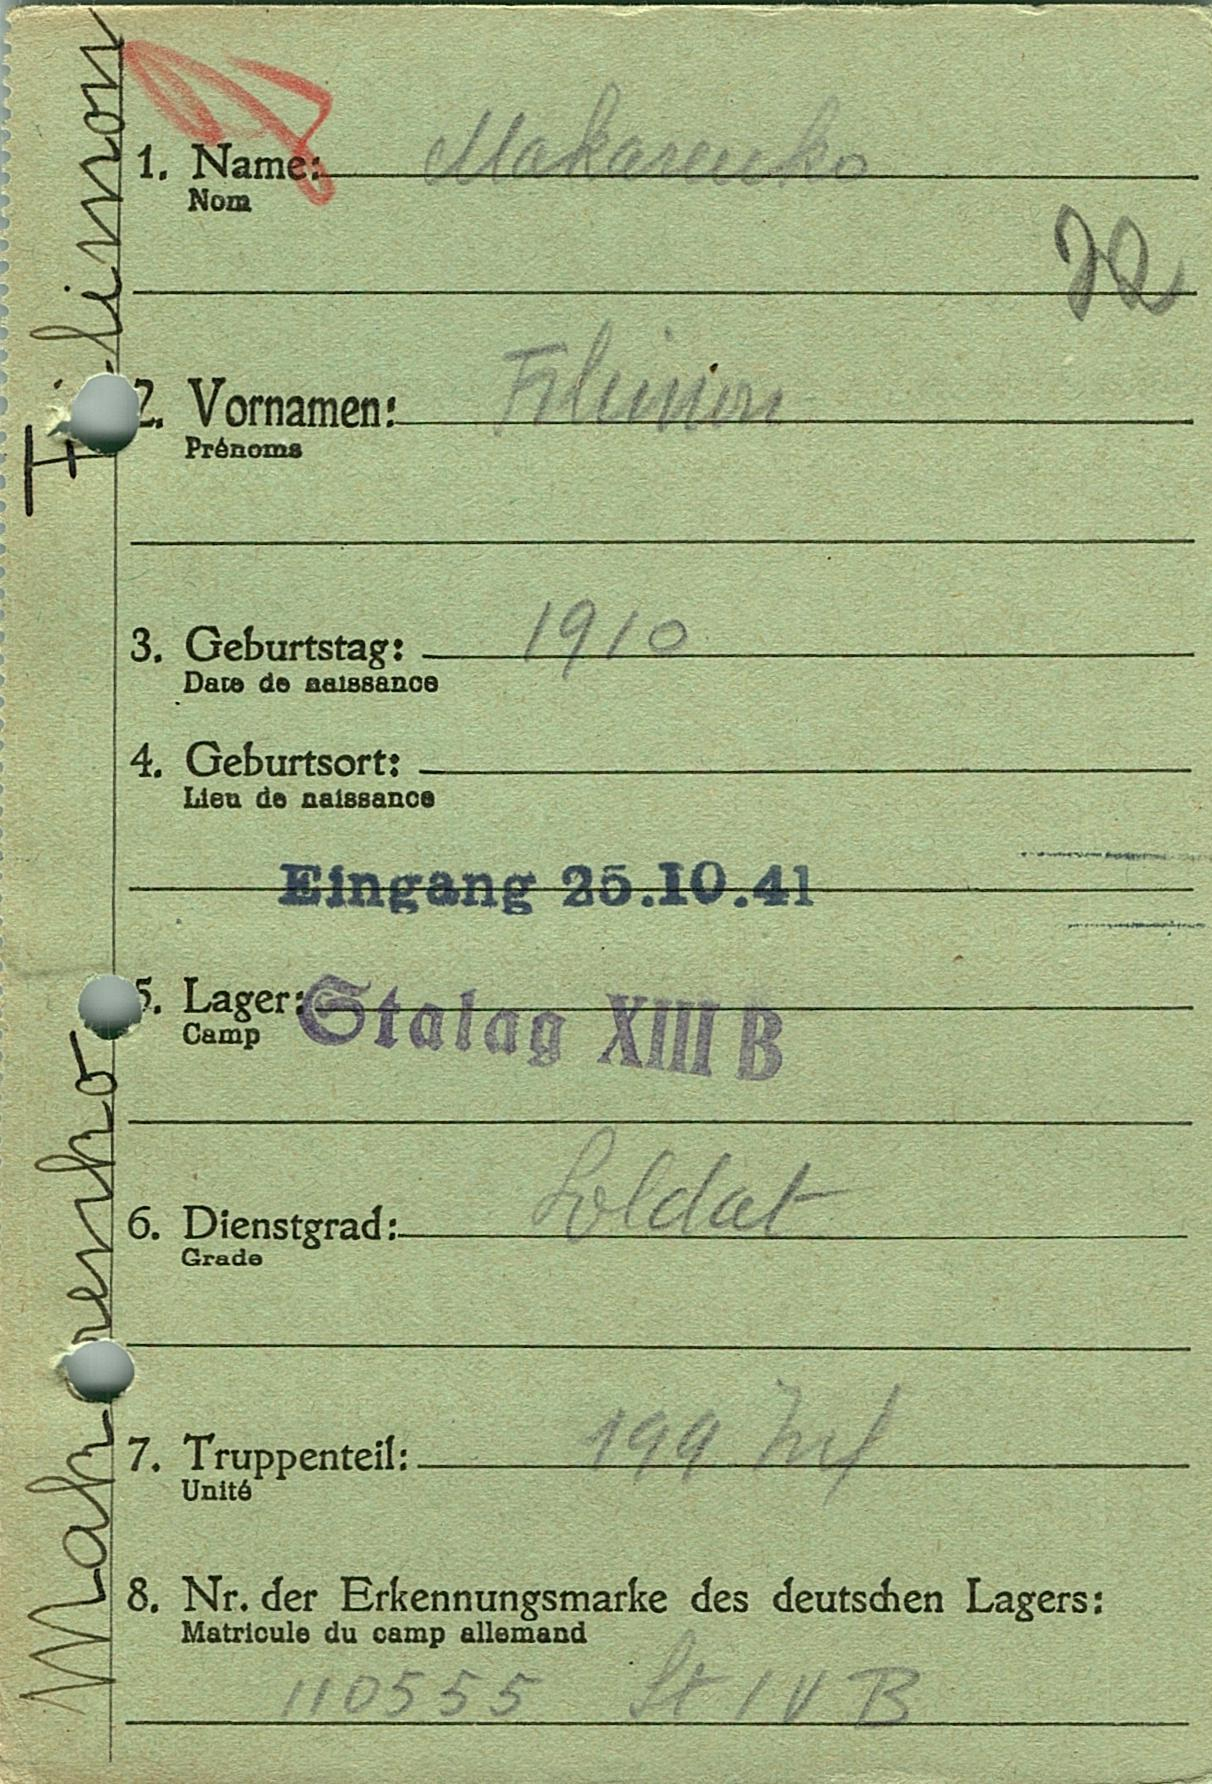 1. Name: Makarenko
Nom
72
2. Vornamen: Filimon
Prénoms
3. Geburtstag: 1910
Date de naissance
4. Geburtsort:
Lieu de naissance
Eingang 25.10.41
5. Lager: Stalag XIII B
Camp
6. Dienstgrad: Soldat
Grade
7. Truppenteil: 199 Inf
Unité
8. Nr. der Erkennungsmarke des deutschen Lagers:
Matricule du camp allemand
110555 St IV B
Makarenko Filimon